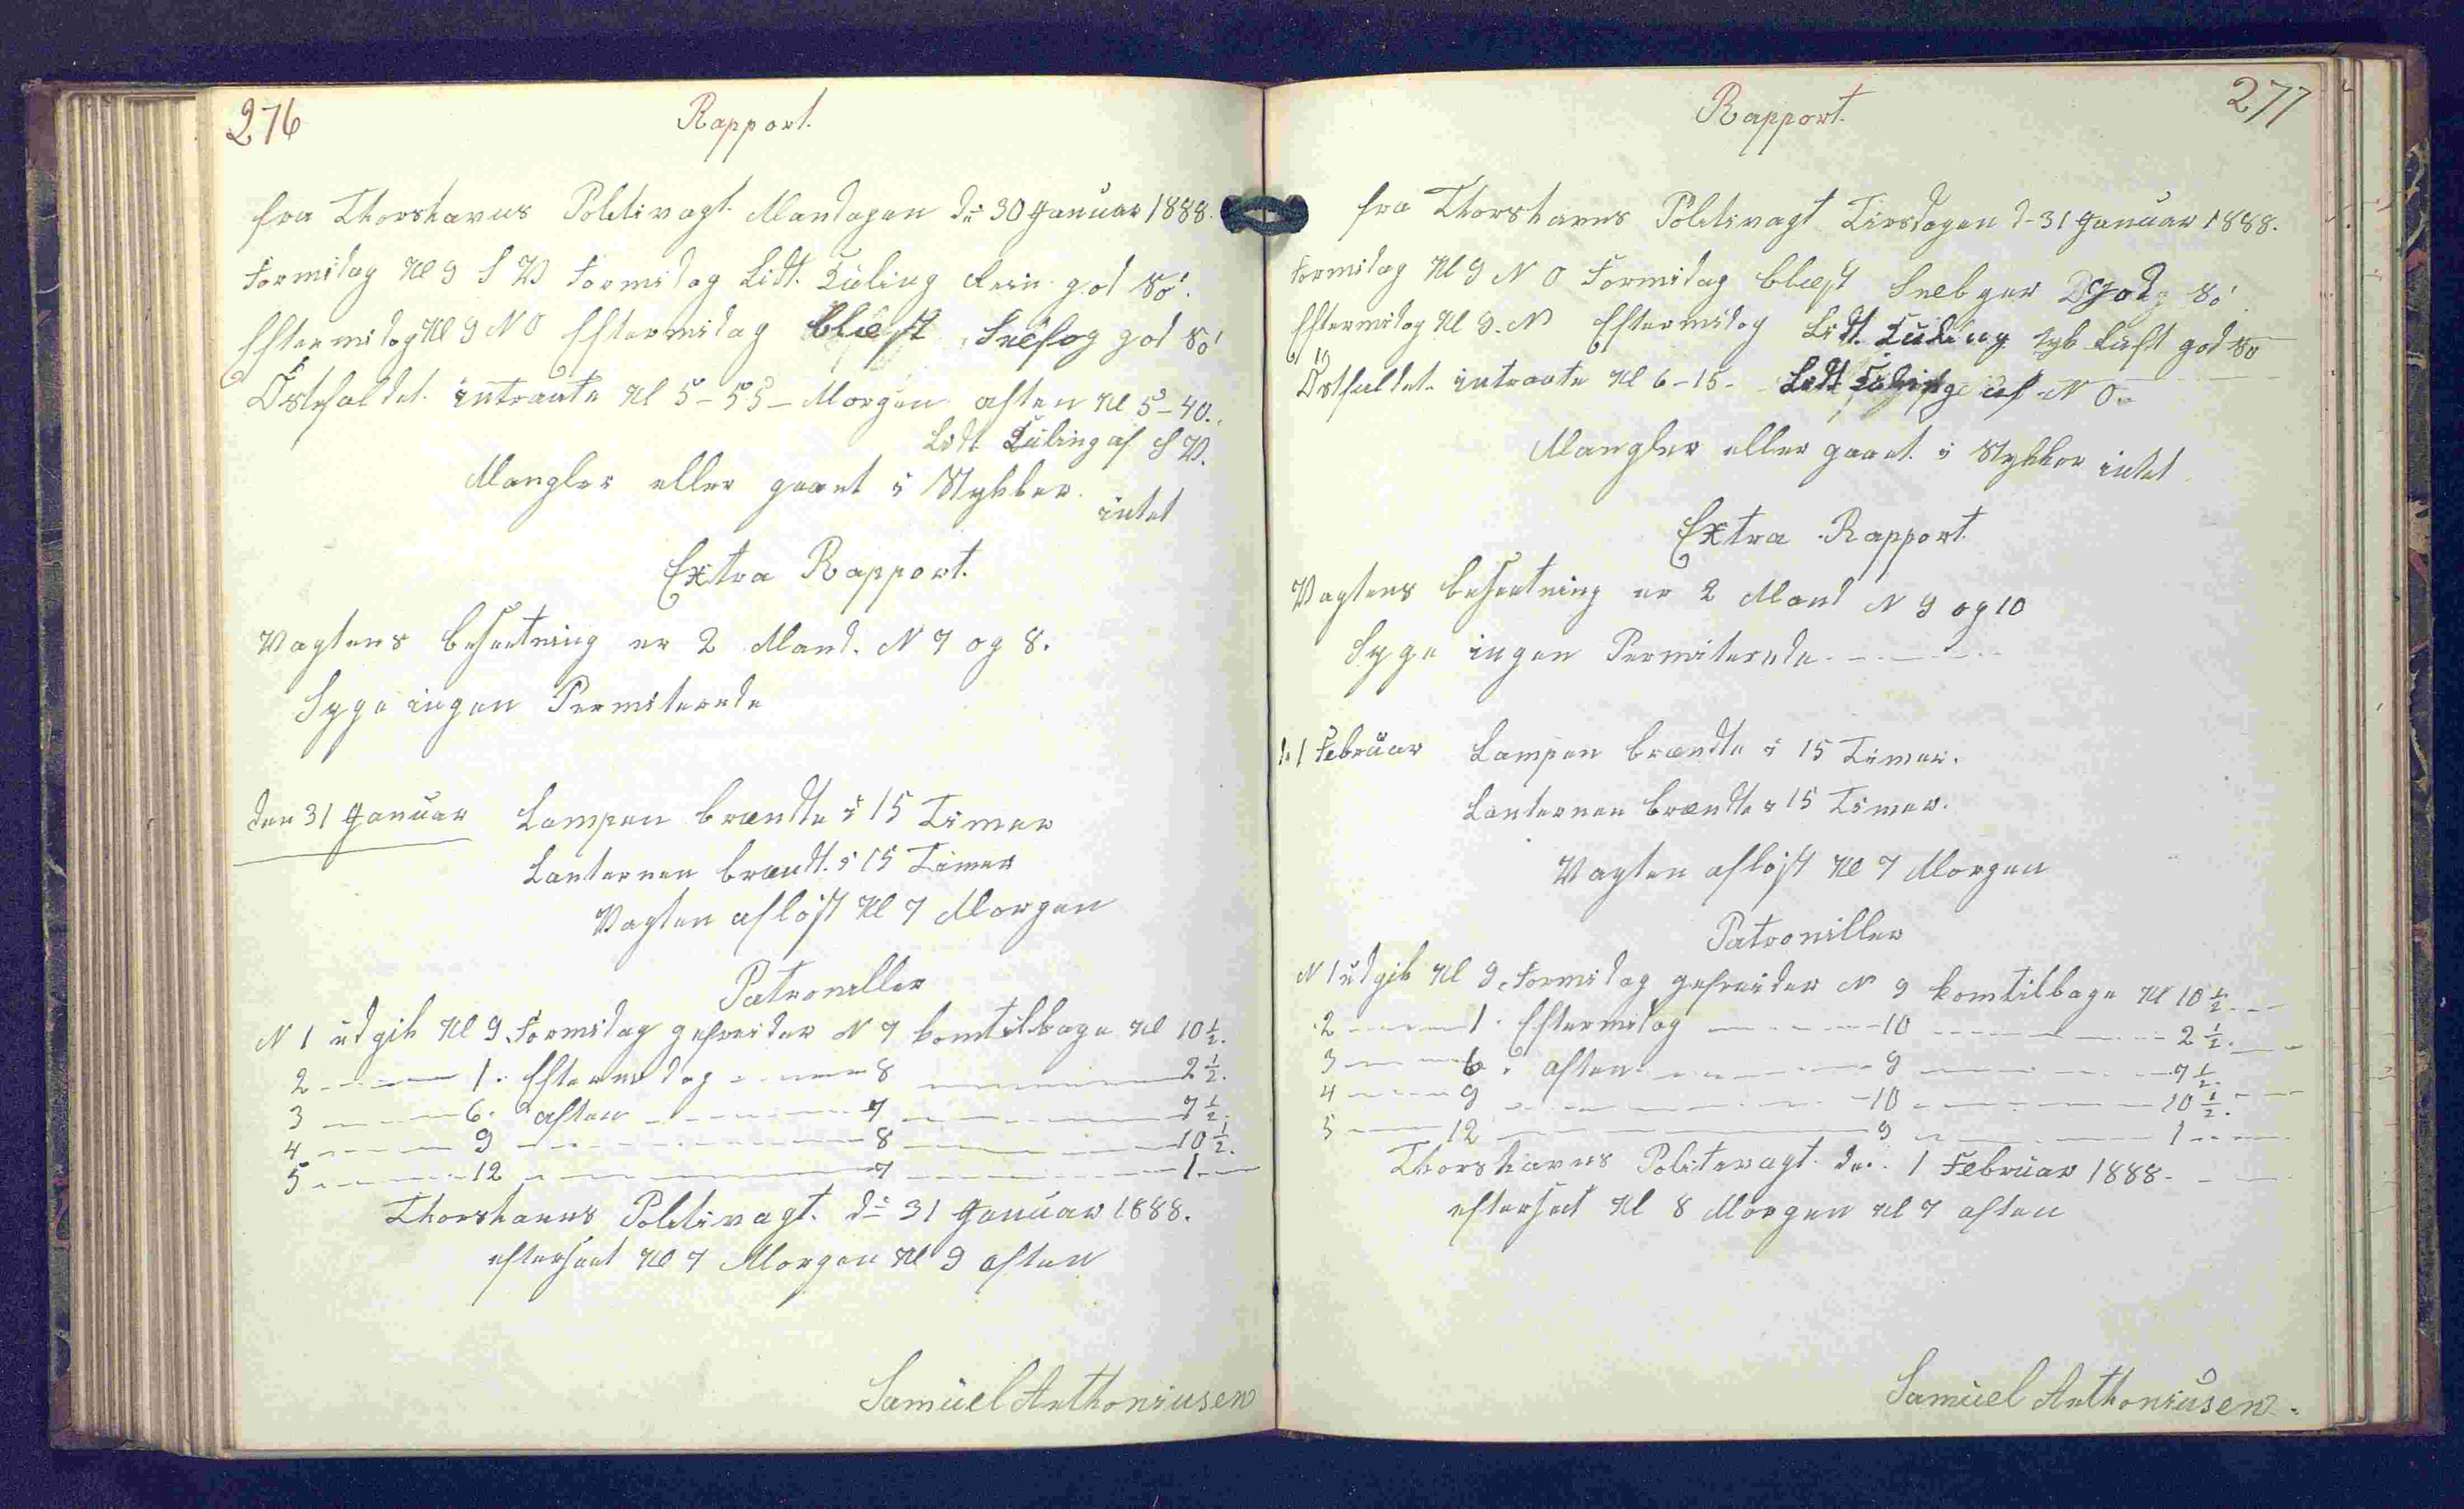 276
Rapport.
fra Thorshavns Politivagt. Mandagen d= 30 Januar 1888.
Formidag Kl 9 S V Formidag Lidt. Kuling Rein god Sö.
Eftermidag Kl 9 N O Eftermidag blæst Sneefog god Sö
Östefaldet. intraate Kl 5-55- Morgen aften Kl 5-40.
Lidt Kuling af S V.
Mangler eller gaaet i Stykker.
intet
Extra Rapport.
Vagtens besætning er 2 Mand. N 7 og 8.
Syge ingen Permiterede
den 31 Januar Lampen brændte i 15 Timer
Lanternen brændt. i 15 Timer
Vagten aflöst Kl 7 Morgen
Patroniller
N 1 udgik Kl 9 Formidag gefreider N 7 kom tilbage Kl 10 1/2.
2 - - - 1. Eftermidag - - - 8 - - - 2 1/2.
3 - - - 6. aften - - - 7 - - - 7 1/2.
4 - - - 9 - - - 8 - - - 10 1/2.
5 - - - 12 - - - 7 - - - 1. -
Thorshavns Politivagt. d= 31 Januar 1888.
efterseet Kl 7 Morgen Kl 9 aften
Samuel Anthoniusen
277
Rapport.
fra Thorshavns Politivagt Tirsdagen d- 31 Januar 1888.
Formidag Kl 9 N O Formidag blæst Sneebger god Sö
Eftermidag Kl 9. N Eftermidag Lidt. Kuling tyk Luft god Sö
Östfaldet. intraate Kl 6-15- Lidt Kuling af N O.
Mangler eller gaaet. i Stykker intet
Extra Rapport.
Vagtens besætning er 2 Mand N 9 og 10
Syge ingen Permiterede - - -
d. 1 Februar Lampen brændte i 15 Timer.
Lanternen brændte i 15 Timer.
Vagten aflöst Kl 7 Morgen
Patroniller
N 1 udgik Kl 9. Formidag gefreider N 9 kom tilbage Kl 10 1/2 - -
2 - - - 1. Eftermidag - - - 10 - - - 2 1/2. - -
3 - - - 6. aften - - - 9 - - - 7 1/2.
4 - - - 9 - - - 10 - - - 10 1/2. - -
5 - - - 12 - - - 9 - - - 1 - - -
Thorshavns Politivagt. de.. 1 Februar 1888. - -
efterseet Kl 8 Morgen Kl 7 aften
Samuel Anthoniusen.